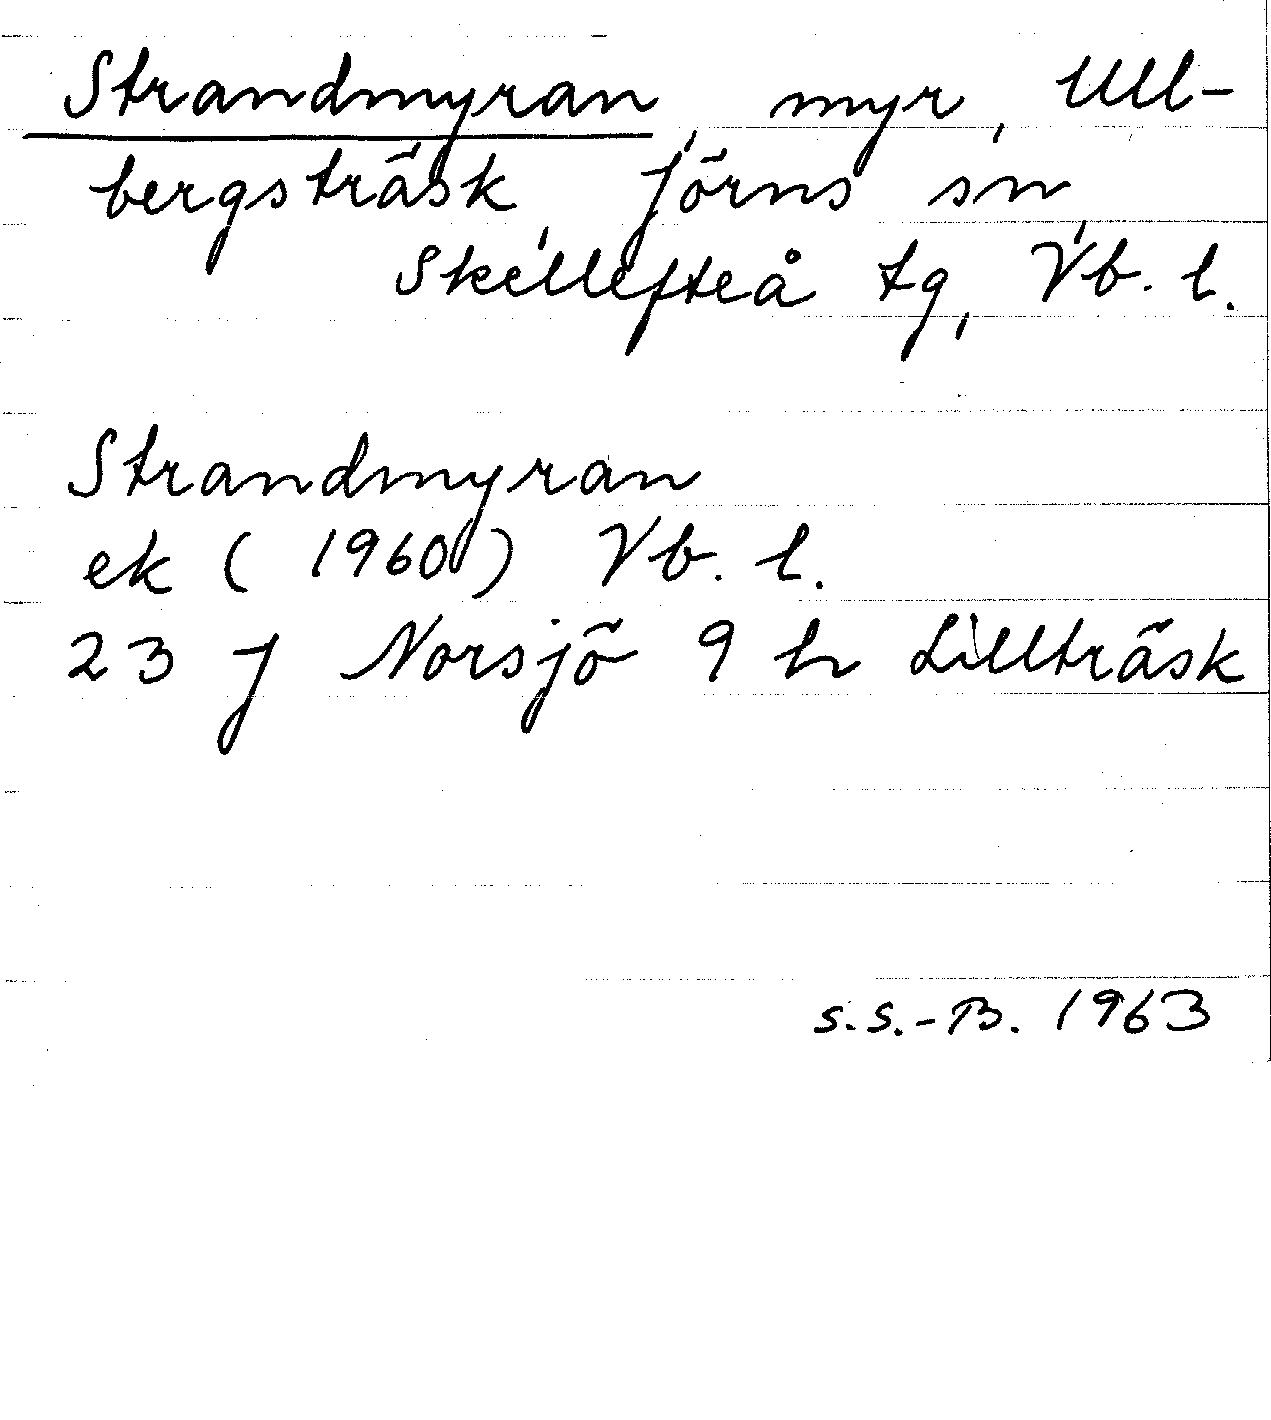 Strandmyran, myr, Ull-
bergsträsk, Jörns sn,
Skellefteå tg, Vb. l.
Strandmyran
ek (1960) Vb. l.
23 J Norsjö 9 h Lillträsk
S.S.-B. 1963